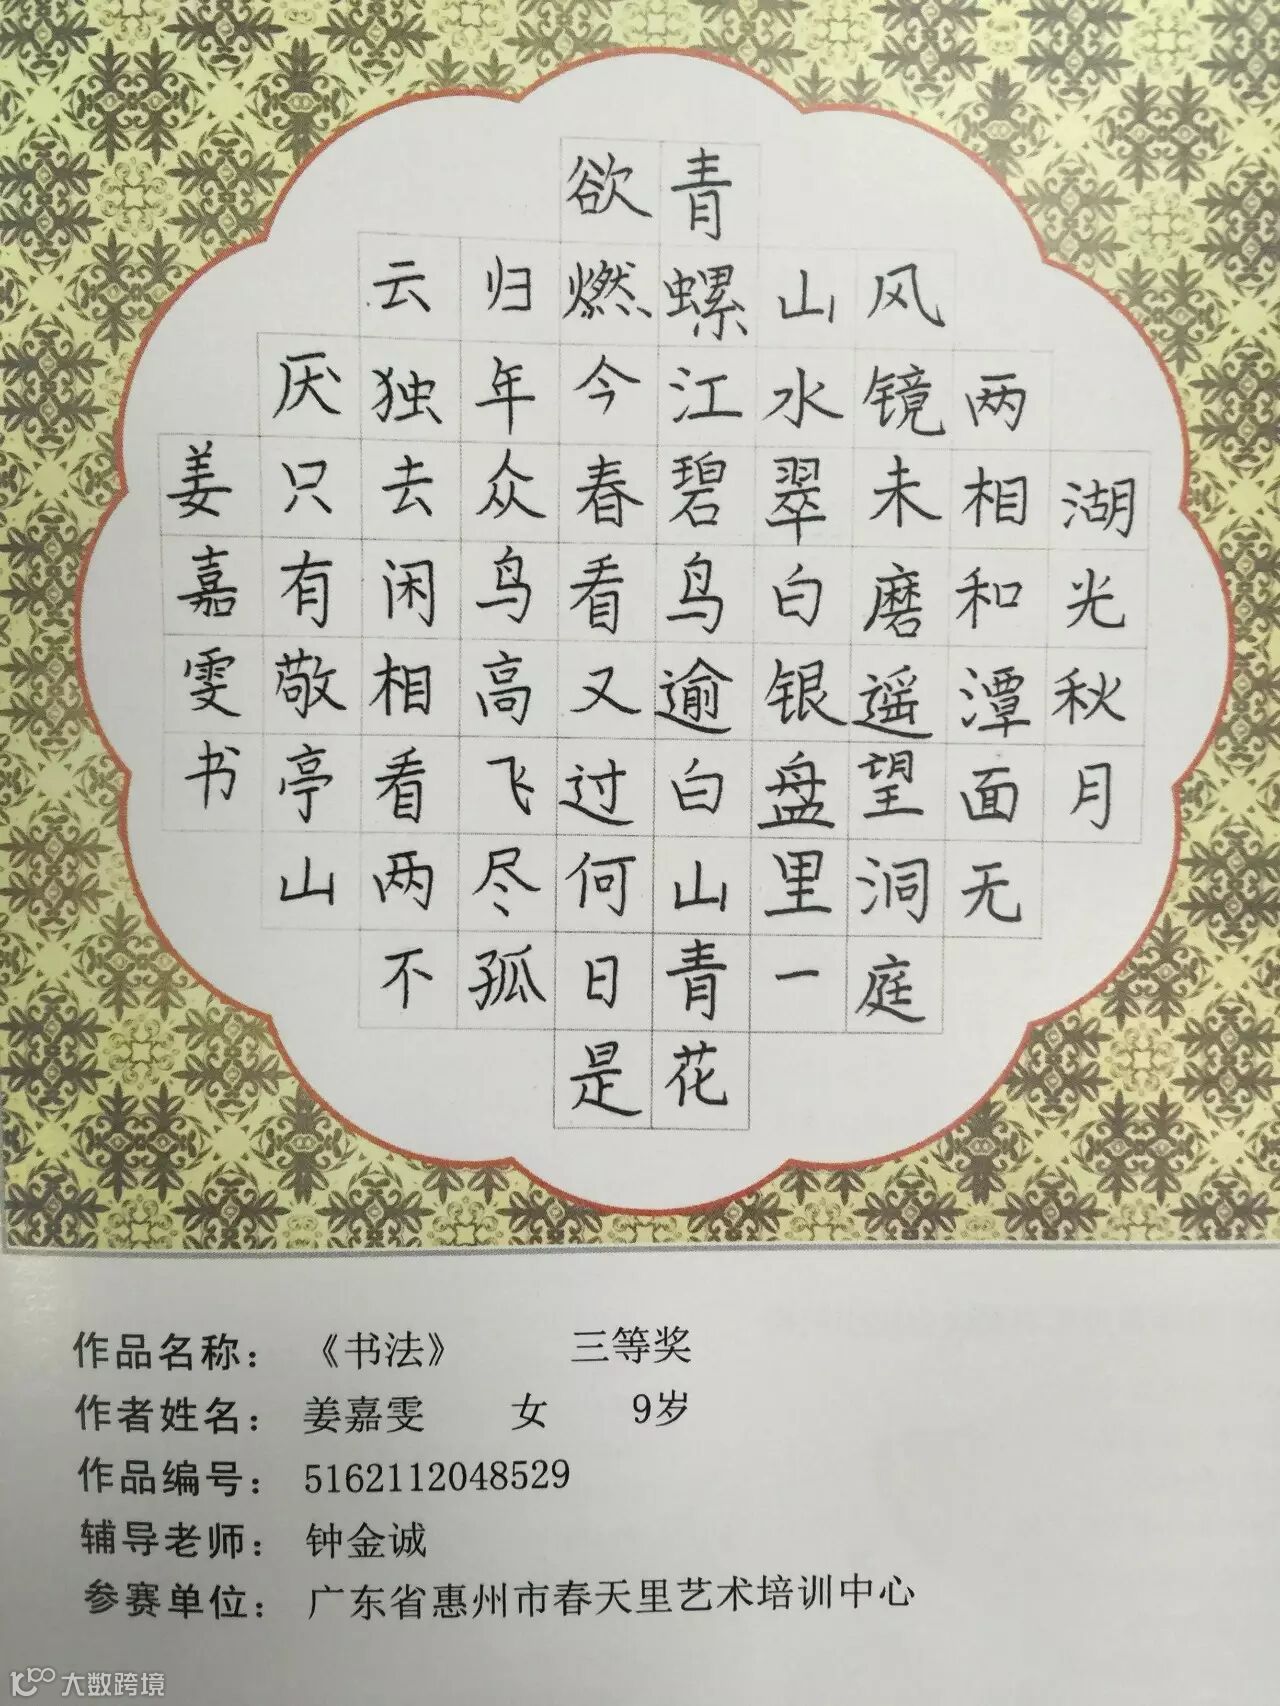 湖光秋月
两相和潭面无
风镜未磨遥望洞庭
山水翠白银盘里一
青螺江碧鸟逾白山青花
欲燃今春看又过何日是
归年众鸟高飞尽孤
云独去闲相看两不
厌只有敬亭山
姜嘉雯书
作品名称：《书法》 三等奖
作者姓名：姜嘉雯 女 9岁
作品编号：5162112048529
辅导老师：钟金诚
参赛单位：广东省惠州市春天里艺术培训中心
大数跨境